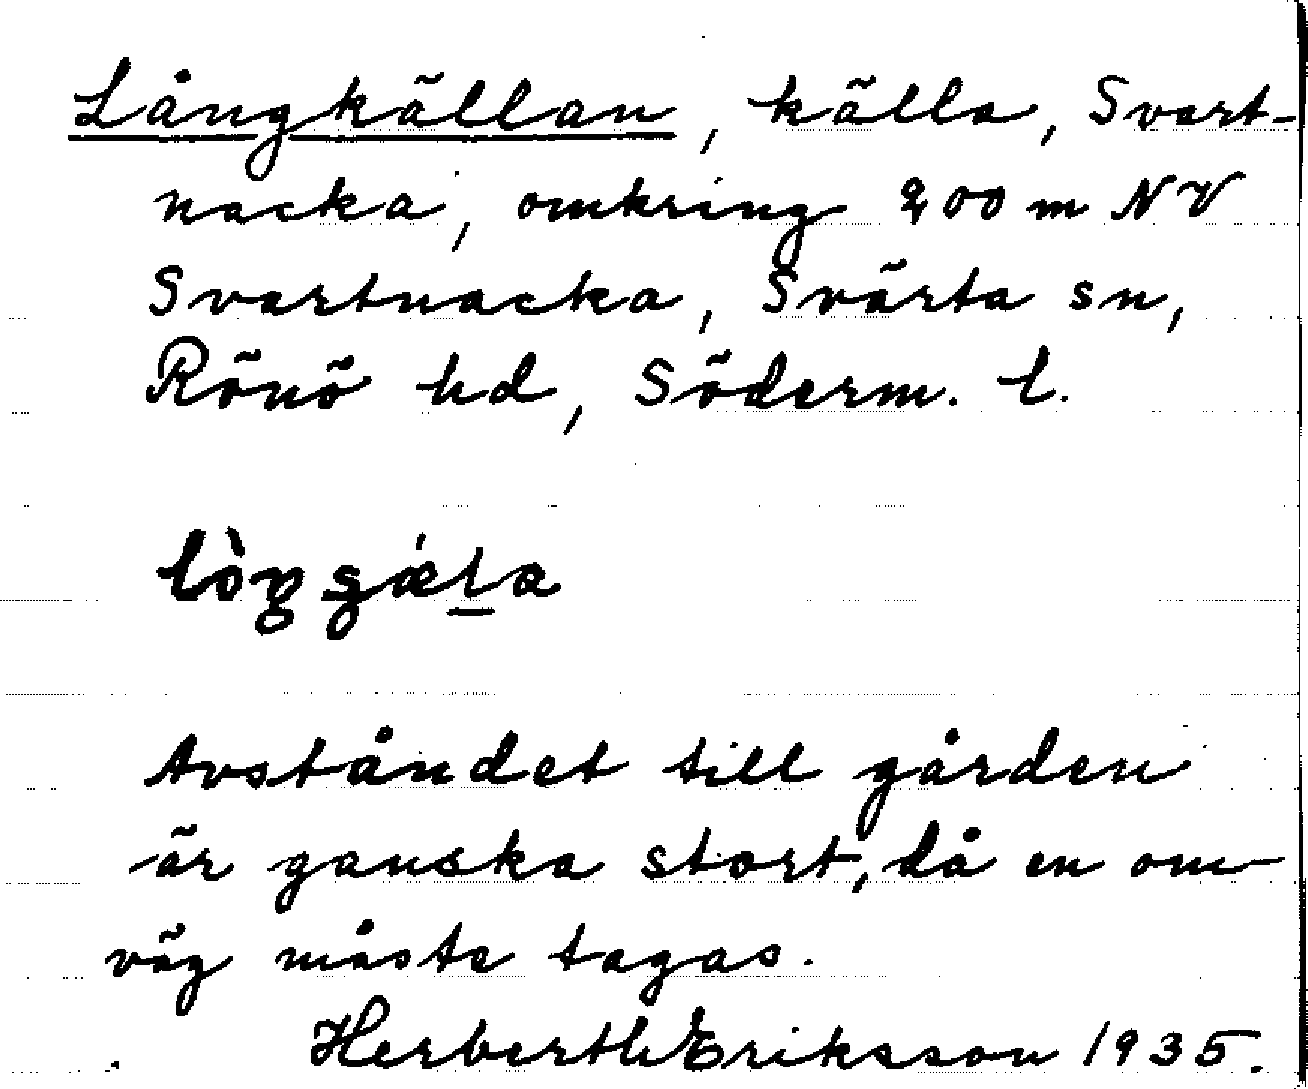 Långkällan, källa, Svart-
nacka, omkring 200 m NV
Svartnacka, Svärta sn,
Rönö hd, Söderm. l.
Avståndet till gården
är ganska stort, då en om-
väg måste tagas.
Herberth Eriksson 1935.